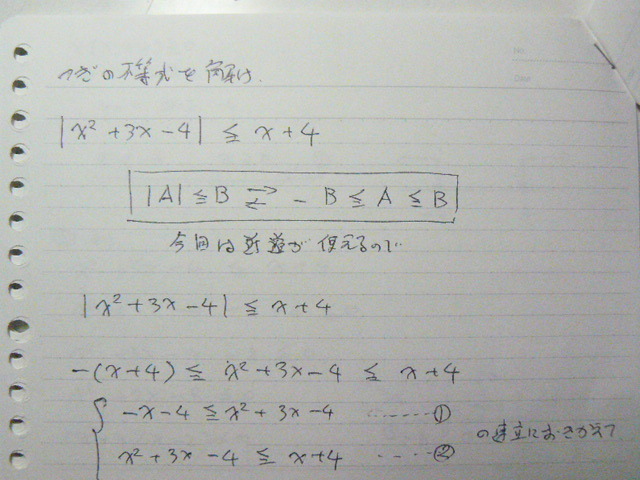 つぎの不等式を解け.
|x² + 3x - 4| ≦ x + 4
|A| ≦ B ⇄ - B ≦ A ≦ B
今回は が使えるので
|x² + 3x - 4| ≦ x + 4
-(x + 4) ≦ x² + 3x - 4 ≦ x + 4
{ -x - 4 ≦ x² + 3x - 4 ........ ①
x² + 3x - 4 ≦ x + 4 ..... ②
の連立におきかえて